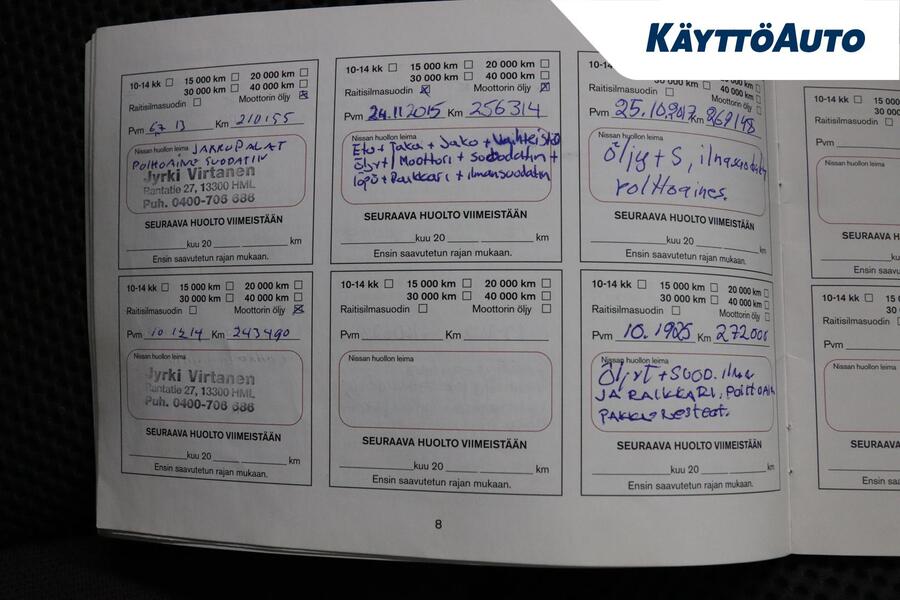 KÄYTTÖAUTO
10-14 kk 15 000 km 20 000 km
30 000 km 40 000 km
Raitisilmasuodin Moottorin öljy
Pvm 6.7. 13 Km 210155
Nissan huollon leima JARRUPALAT
POLTTOAINE SUODATIN
Jyrki Virtanen
Rantatie 27, 13300 HML
Puh. 0400-706 686
SEURAAVA HUOLTO VIIMEISTÄÄN
kuu 20 km
Ensin saavutetun rajan mukaan.
10-14 kk 15 000 km 20 000 km
30 000 km 40 000 km
Raitisilmasuodin Moottorin öljy
Pvm 10 1214 Km 243490
Nissan huollon leima
Jyrki Virtanen
Rantatie 27, 13300 HML
Puh. 0400-706 686
SEURAAVA HUOLTO VIIMEISTÄÄN
kuu 20 km
Ensin saavutetun rajan mukaan.
10-14 kk 15 000 km 20 000 km
30 000 km 40 000 km
Raitisilmasuodin Moottorin öljy
Pvm 24.11.2015 Km 256314
Nissan huollon leima
Etu + Taka + Jako + Vaihteisto
Öljyt / Moottori + suodadatin +
+ Raikkari + ilmansuodatin
SEURAAVA HUOLTO VIIMEISTÄÄN
kuu 20 km
Ensin saavutetun rajan mukaan.
10-14 kk 15 000 km 20 000 km
30 000 km 40 000 km
Raitisilmasuodin Moottorin öljy
Pvm Km
Nissan huollon leima
SEURAAVA HUOLTO VIIMEISTÄÄN
kuu 20 km
Ensin saavutetun rajan mukaan.
30 000 km 40 000 km
Raitisilmasuodin Moottorin öljy
Pvm 25.10.2017 Km 269148
Nissan huollon leima
Öljy + S,
polttoaines.
SEURAAVA HUOLTO VIIMEISTÄÄN
kuu 20 km
Ensin saavutetun rajan mukaan.
10-14 kk 15 000 km 20 000 km
30 000 km 40 000 km
Raitisilmasuodin Moottorin öljy
Pvm 10. 1925 Km 272000
Nissan huollon leima
Öljyt + SUOD. ilma
JA RAIKKARI, POLTTOAIN
SEURAAVA HUOLTO VIIMEISTÄÄN
kuu 20 km
Ensin saavutetun rajan mukaan.
10-14 kk 15 000
30 00
Raitisilmasuodin
Pvm
Nissan huollon leima
SEURAAVA H
kuu
Ensin saavu
10-14 kk 15
30
Raitisilmasuodin
Pvm
Nissan huollon leima
SEURAAVA
kuu
Ensin saa
8